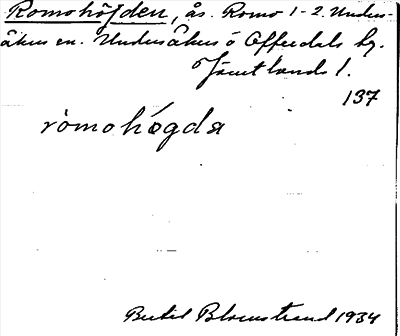 Romohöjden, ås. Romo 1-2. Unders-
åkers sn. Undersåkers o Offerdals tg.
Jämtlands l.
137
ròmohǿgda
Bertil Blomstrand 1934